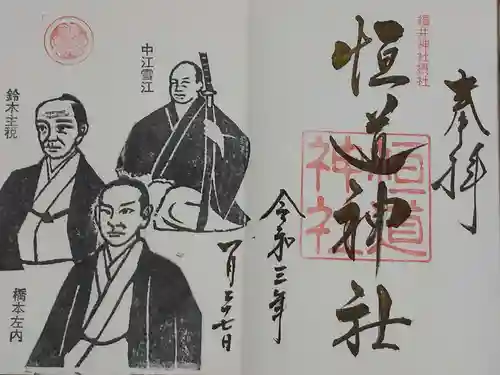 奉拝
福井神社摂社
恒道神社
恒道神社
令和三年
一月二十七日
中江雪江
鈴木主税
橋本左内